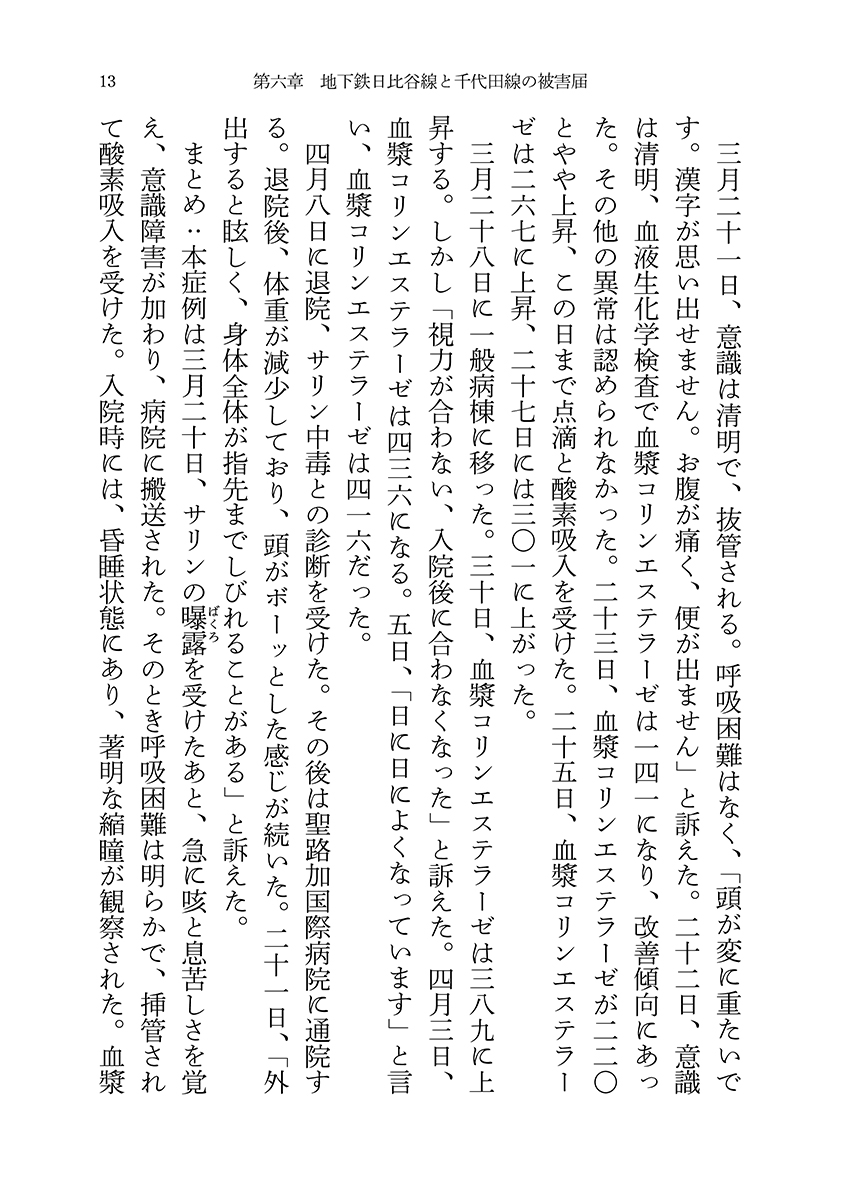 13
第六章　地下鉄日比谷線と千代田線の被害届
三月二十一日、意識は清明で、抜管される。呼吸困難はなく、「頭が変に重たいで
す。漢字が思い出せません。お腹が痛く、便が出ません」と訴えた。二十二日、意識
は清明、血液生化学検査で血漿コリンエステラーゼは一四一になり、改善傾向にあっ
た。その他の異常は認められなかった。二十三日、血漿コリンエステラーゼが二二〇
とやや上昇、この日まで点滴と酸素吸入を受けた。二十五日、血漿コリンエステラー
ゼは二六七に上昇、二十七日には三〇一に上がった。
三月二十八日に一般病棟に移った。三十日、血漿コリンエステラーゼは三八九に上
昇する。しかし「視力が合わない、入院後に合わなくなった」と訴えた。四月三日、
血漿コリンエステラーゼは四三六になる。五日、「日に日によくなっています」と言
い、血漿コリンエステラーゼは四一六だった。
四月八日に退院、サリン中毒との診断を受けた。その後は聖路加国際病院に通院す
る。退院後、体重が減少しており、頭がボーッとした感じが続いた。二十一日、「外
出すると眩しく、身体全体が指先までしびれることがある」と訴えた。
まとめ：本症例は三月二十日、サリンの曝露を受けたあと、急に咳と息苦しさを覚
ばくろ
え、意識障害が加わり、病院に搬送された。そのとき呼吸困難は明らかで、挿管され
て酸素吸入を受けた。入院時には、昏睡状態にあり、著明な縮瞳が観察された。血漿